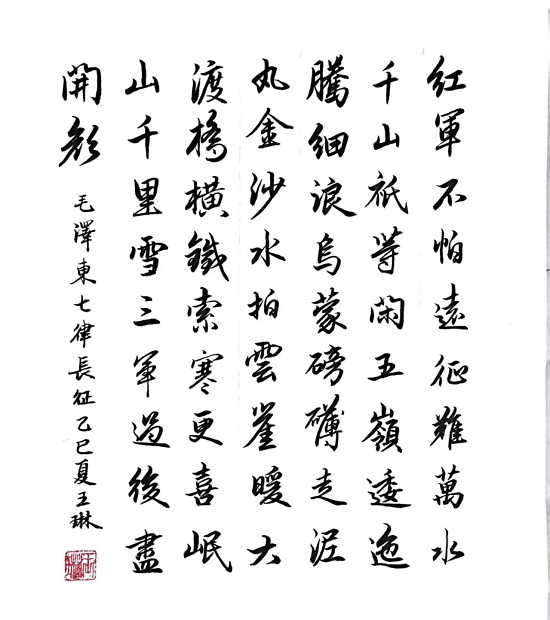 紅軍不怕遠征難萬水
千山衹等閑五嶺逶迤
騰細浪烏蒙磅礴走泥
丸金沙水拍雲崖暖大
渡橋橫鐵索寒更喜岷
山千里雪三軍過後盡
開顏
毛澤東七律長征乙巳夏王琳